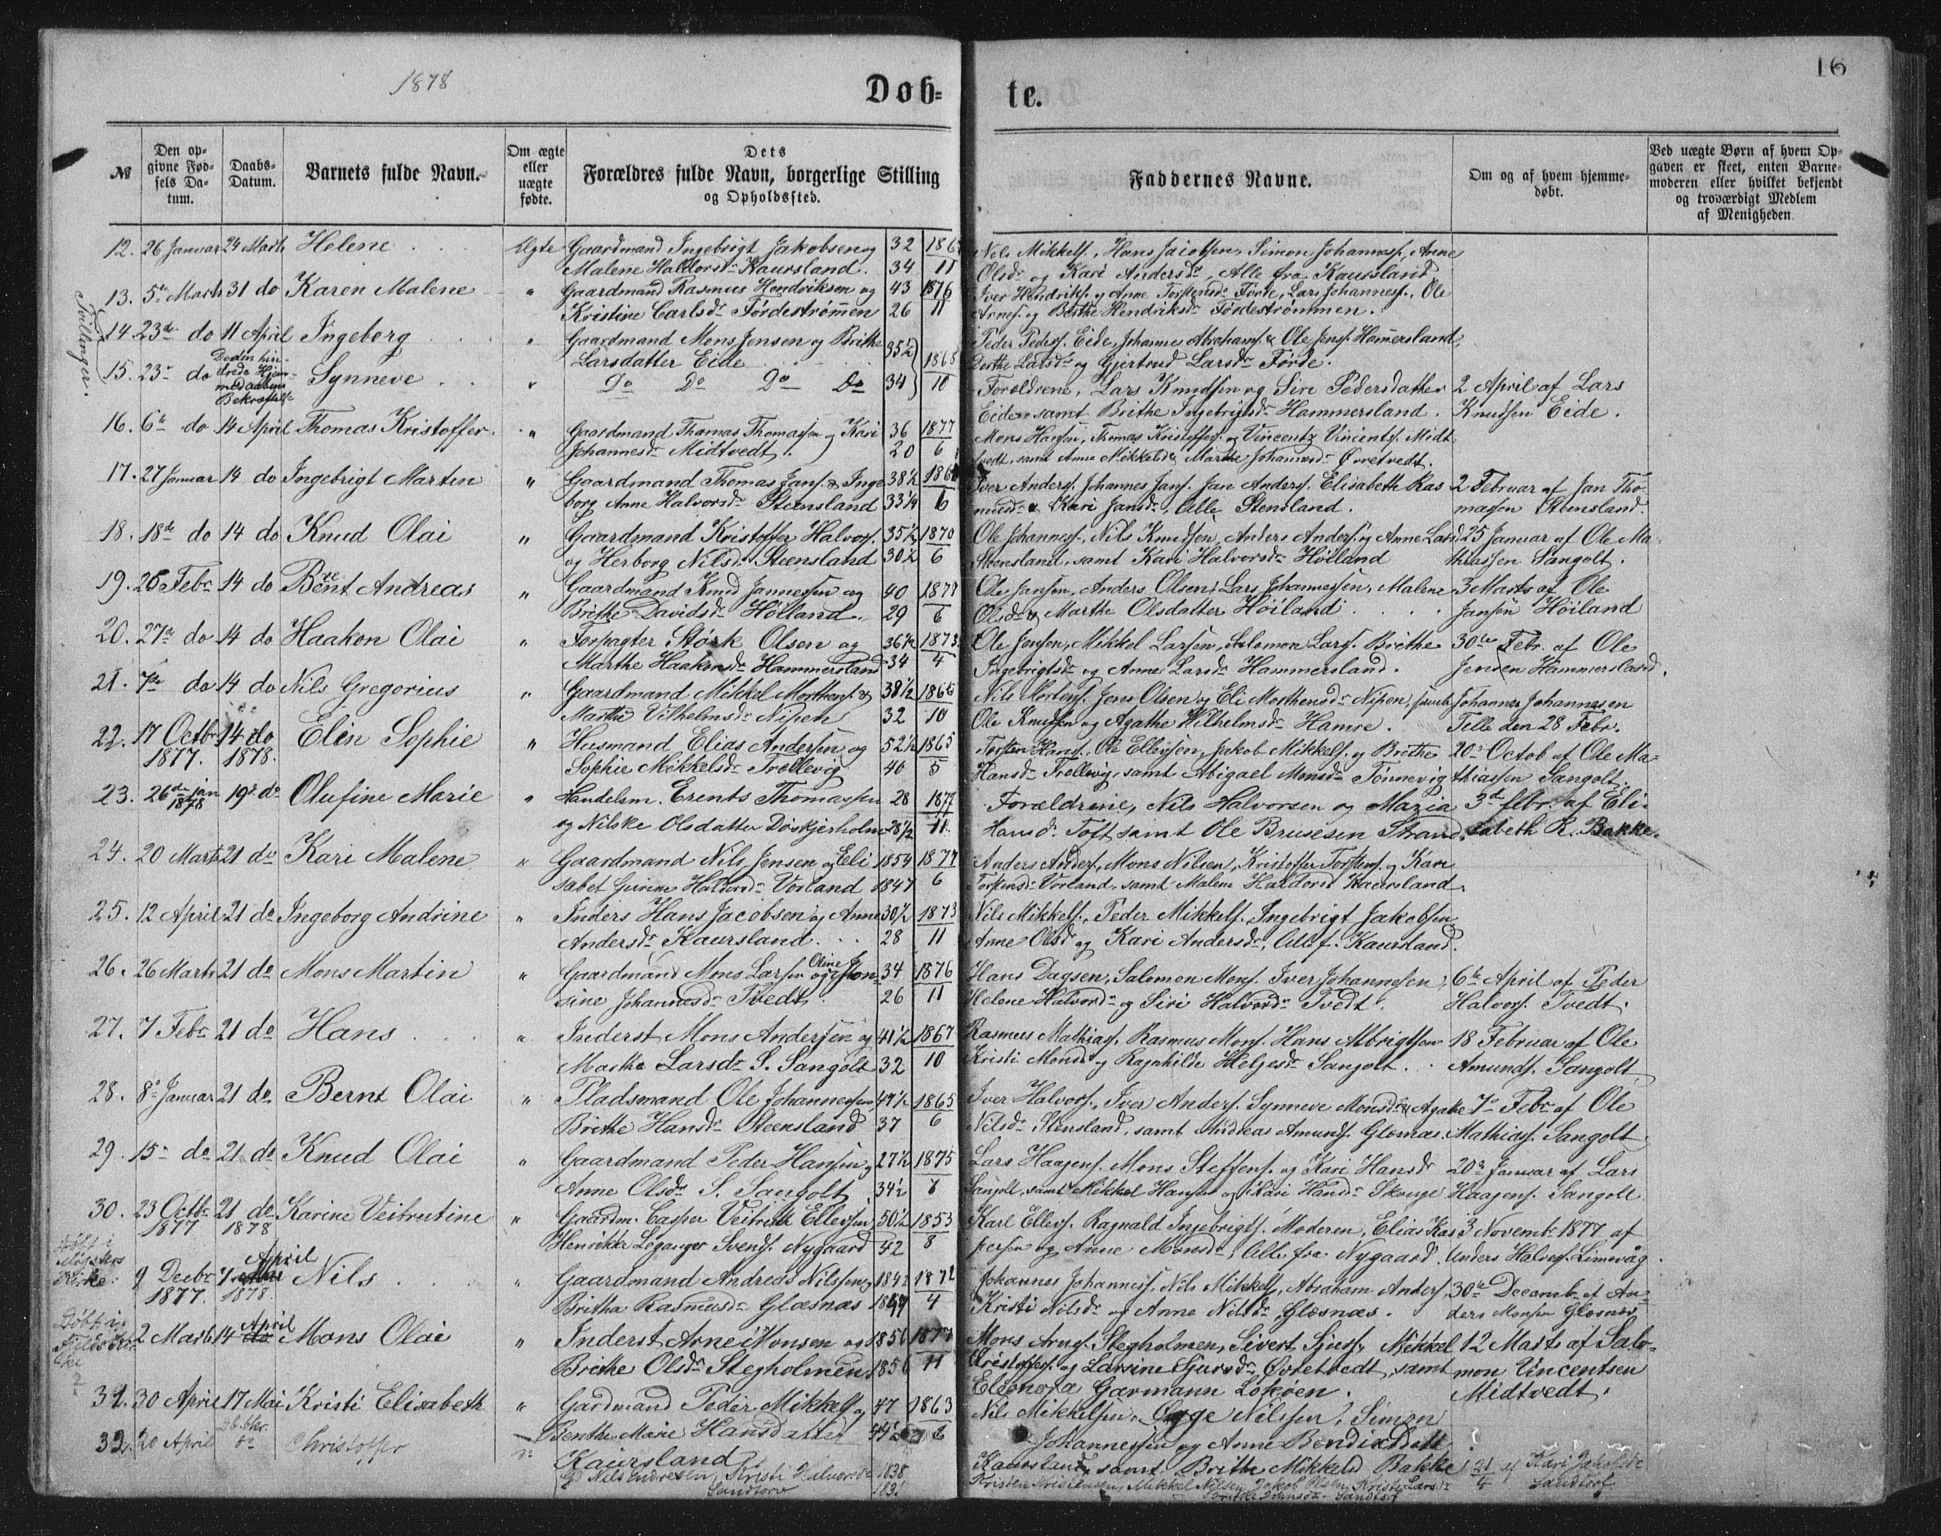 1878
Døb=
te.
16
№
Den op-
givne Fød-
sels Da-
tum.
Daabs-
Datum.
Barnets fulde Navn.
Om ægte
eller
uægte
fødte.
Dets
Forældres fulde Navn, borgerlige Stilling
og Opholdssted.
Faddernes Navne.
Om og af hvem hjemme-
døbt.
Ved uægte Børn af hvem Op-
gaven er skeet, enten Barne-
moderen eller hvilket bekjendt
og troværdigt Medlem
af Menigheden.
12. 26 Januar 24 Marts Helene Ægte Gaardmand Ingebrigt Jakobsen og 32
Malene Haldorsdr Kaursland. 34 11
Nils Mikkels. Hans Jacobsen, Simon Johanness, Anne
Olsdr og Kari Andersdr, Alle fra Kaursland
13. 5te Marts 31 do Karen Malene " Gaardmand Rasmus Hendriksen og 43 1876
Kristine Carlsdr Førdestrømmen 26 11
Iver Hendriks. og Anne Torstensdr Førde, Lars Johanness., Ole
Arnes. og Berthe Hendriksdr Førdestrømmen.
Tvillinger.
14. 23de do 11 April Ingeborg " Gaardmand Mons Jensen og Brithe 35½
Larsdatter Eide 1868
Peder Peders. Eide, Johannes Abrahams. & Ole Jens. Hammersland,
Dorthe Larsdr og Gjertrud Larsdr Førde.
15. 23de do Døden hin-
drede Hjem-
medaabens
Bekræftelse
Synneve " Do Do Do Do 34 10
Forældrene, Lars Knudsen og Sire Pedersdatter
Eide samt Brithe Ingebrigtsdr Hammersland.
2 April af Lars
Knudsen Eide.
16. 6te do 14 April Thomas Kristoffer " Gaardmand Thomas Thomassen og Kari 36 1877
Johannesdr Midtvedt. 20 6
Mons Hansen, Thomas Kristoffers. og Vincentz Vincents. Midt
vedt, samt Anne Mikkelsdr & Marthe Johannesdr Øvretvedt.
17. 27 Januar 14 do Ingebrigt Martin " Gaardmand Thomas Jans. & Inge 38½
borg Anne Halvorsdr Steensland 33¼ 6
Iver Anders. Johannes Jans. Jan Anders. Elisabeth Ras
musdr & Kari Jansdr, Alle Stensland.
2 Februar af Jan Tho-
masen Stensland.
18. 18de do 14 do Knud Olai " Gaardmand Kristoffer Halvors. 35½ 1870
og Herborg Nilsdr Steensland 30½ 6
Ole Johanness, Nils Knudsen, Anders Anders. og Anne Larsdr
Steensland, samt Kari Halvorsdr Høiland
25 Januar af Ole Ma-
thiassen Sangolt.
19. 26 Febr 14 do Bent Andreas " Gaardmand Knud Jannesen og 40
Brithe Davidsdr Høiland. 29 6
Ole Jansen, Anders Olsen, Lars Johannessen, Malene
Olsdr & Marthe Olsdatter Høiland
3 Marts af Ole
Jansen Høiland
20. 27de do 14 do Haakon Olai " Forpagter Størk Olsen og 36½ 1873
Marthe Haakensdr Hammersland 34 4
Ole Jensen, Mikkel Larsen, Salomon Lars. Brithe
Ingebrigtsdr og Anne Larsdr Hammersland.
30te Febr. af Ole
Jensen Hammersland.
21. 7de do 14 do Nils Gregorius " Gaardmand Mikkel Mortens. & 38½ 1866
Marthe Vilhelmsdr Nipen 32 10
Nils Mortens. Jens Olsen og Eli Morthensdr Nipen, samt
Ole Knudsen og Agathe Wilhelmsdr Hamre.
Johannes Johannesen
Telle den 28 Febr.
22. 17 Octbr 14 do Elen Sophie " Husmand Elias Andersen og 52½ 1865
1877. 1878. Sophie Mikkelsdr Trollevig 40 5
Torsten Hans. Ole Ellevsen, Jakob Mikkels. og Brithe
Hansdr Trollevig, samt Abigael Monsdr Tønnevig
20de Octob af Ole Ma-
thiassen Sangolt.
23. 26de jan 19de do Olufine Marie " Handelsm. Erents Thomassen 28 1877
1878 og Nilske Olsdatter Døskjersholm 28½ 11.
Forældrene, Nils Halvorsen og Maria
Hansdr Toft samt Ole Brusesen Strand
3de febr. af Eli-
sabeth R. Bakke.
24. 20 Marts 21 do Kari Malene " Gaardmand Nils Jensen og Eli 1854 1877
sabet Gurine Haldorsdr Vorland 1847 6
Anders Anders. Mons Nilsen, Kristoffer Torstens. og Kari
Torstensdr Vorland, samt Malene Haldorsdr Kaursland.
25. 12 April 21 do Ingeborg Andrine " Inders Hans Jacobsen og Anne 30½ 1873
Andersdr Kaursland. 28 11
Nils Mikkels. Peder Mikkels. Ingebrigt Jakobsen
Anne Olsdr og Kari Andersdr, All f. Kaursland.
26. 26 Marts 21 do Mons Martin " Gaardmand Mons Larsen og 34 1876
sine Johannesdr Tvedt. 26 11
Hans Dagsen, Salomon Mons. Iver Johannesen,
Helene Halvorsdr og Siri Halvorsdr Tvedt.
6te April af Peder
Halvors. Tvedt.
27. 7 Febr 21 do Hans " Inderst Mons Andersen og 41½ 1867
Marthe Larsdr S. Sangolt 32 10
Rasmus Mathias. Rasmus Mons. Hans Albrigtsen
Kristi Monsdr og Ragnhilde Helgesdr Sangolt.
18 Februar af Ole
Amunds. Sangolt.
28. 8de Januar 21 do Bernt Olai " Pladsmand Ole Johannessen 47½ 1865
Brithe Hansdr Steensland 37 6
Iver Halvors. Iver Anders. Synneve Monsdr & Agathe
Nilsdr Stensland, samt Andreas Amunds. Glesnæs.
7de Febr af Ole
Mathias. Sangolt.
29. 15de do 21 do Knud Olai " Gaardmand Peder Hansen og 27½ 1875
Anne Olsdr S. Sangolt. 34½
Lars Haagens. Mons Steffens. og Kari Hansdr
Sangolt, samt Mikkel Hansen og Kari Hansdr Skauge
20de Januar af Lars
Haagens. Sangolt.
30. 23 Octbr 21 do Karine Veitrutine " Gaardm. Casper Veitreth Ellevsen 50½ 1853
1877 1878 Henrikke Leganger Svends. Nygaard 42 8
Karl Ellevs. Ragnald Ingebrigts. Moderen, Elias Kas
persen og Anne Monsdr, Alle fra Nygaard.
3 Novemb. 1877 af
Anders Halvors. Limevåg
Døbt i
Møgsters
Kirke.
9 Decbr 7 April Nils " Gaardmand Andreas Nilsen og 1842 1872
1877. 1878 Britha Rasmusdr Glæsnæs 1849 4
Johannes Johanness. Nils Mikkels, Abraham Anders.
Kristi Nilsdr og Anne Nilsdr Glesnæs.
30te Decemb. af An-
ders Monsen Glesnæs
2 Marts 14 April Mons Olai " Inderst Arne Monsen og 1856
Brithe Olsdr Stegholmen 1856 11
Mons Arnes. Stegholmen, Sivert Sjurs. Mikkel
Kristoffers. og Larsine Sjursdr Østetvedt, samt
Eleonora Garmann Løkøen.
12 Marts af Salo-
mon Vincentsen
Midtvedt.
31. 30 April 17 Mai Kristi Elisabeth " Gardmand Peder Mikkels. og 47 1863
Benthe Marie Hansdatter
Kaursland.
Nils Mikkelsen, Nilsen, Simon
Johannessen og Anne Bendixdatt
Kaursland, samt Brithe Mikkelsd Bakke
32. 20 April do Christoffer
Nils Andresen, Kristi Halvorsdr 1838
Sandtorv
Kristen Kristensen, Mikkel Nilsen, Jakob Olsen, Kristi Larsdr
Sandtorv
21/4 af Kari Jakobsdr
Sandtorv